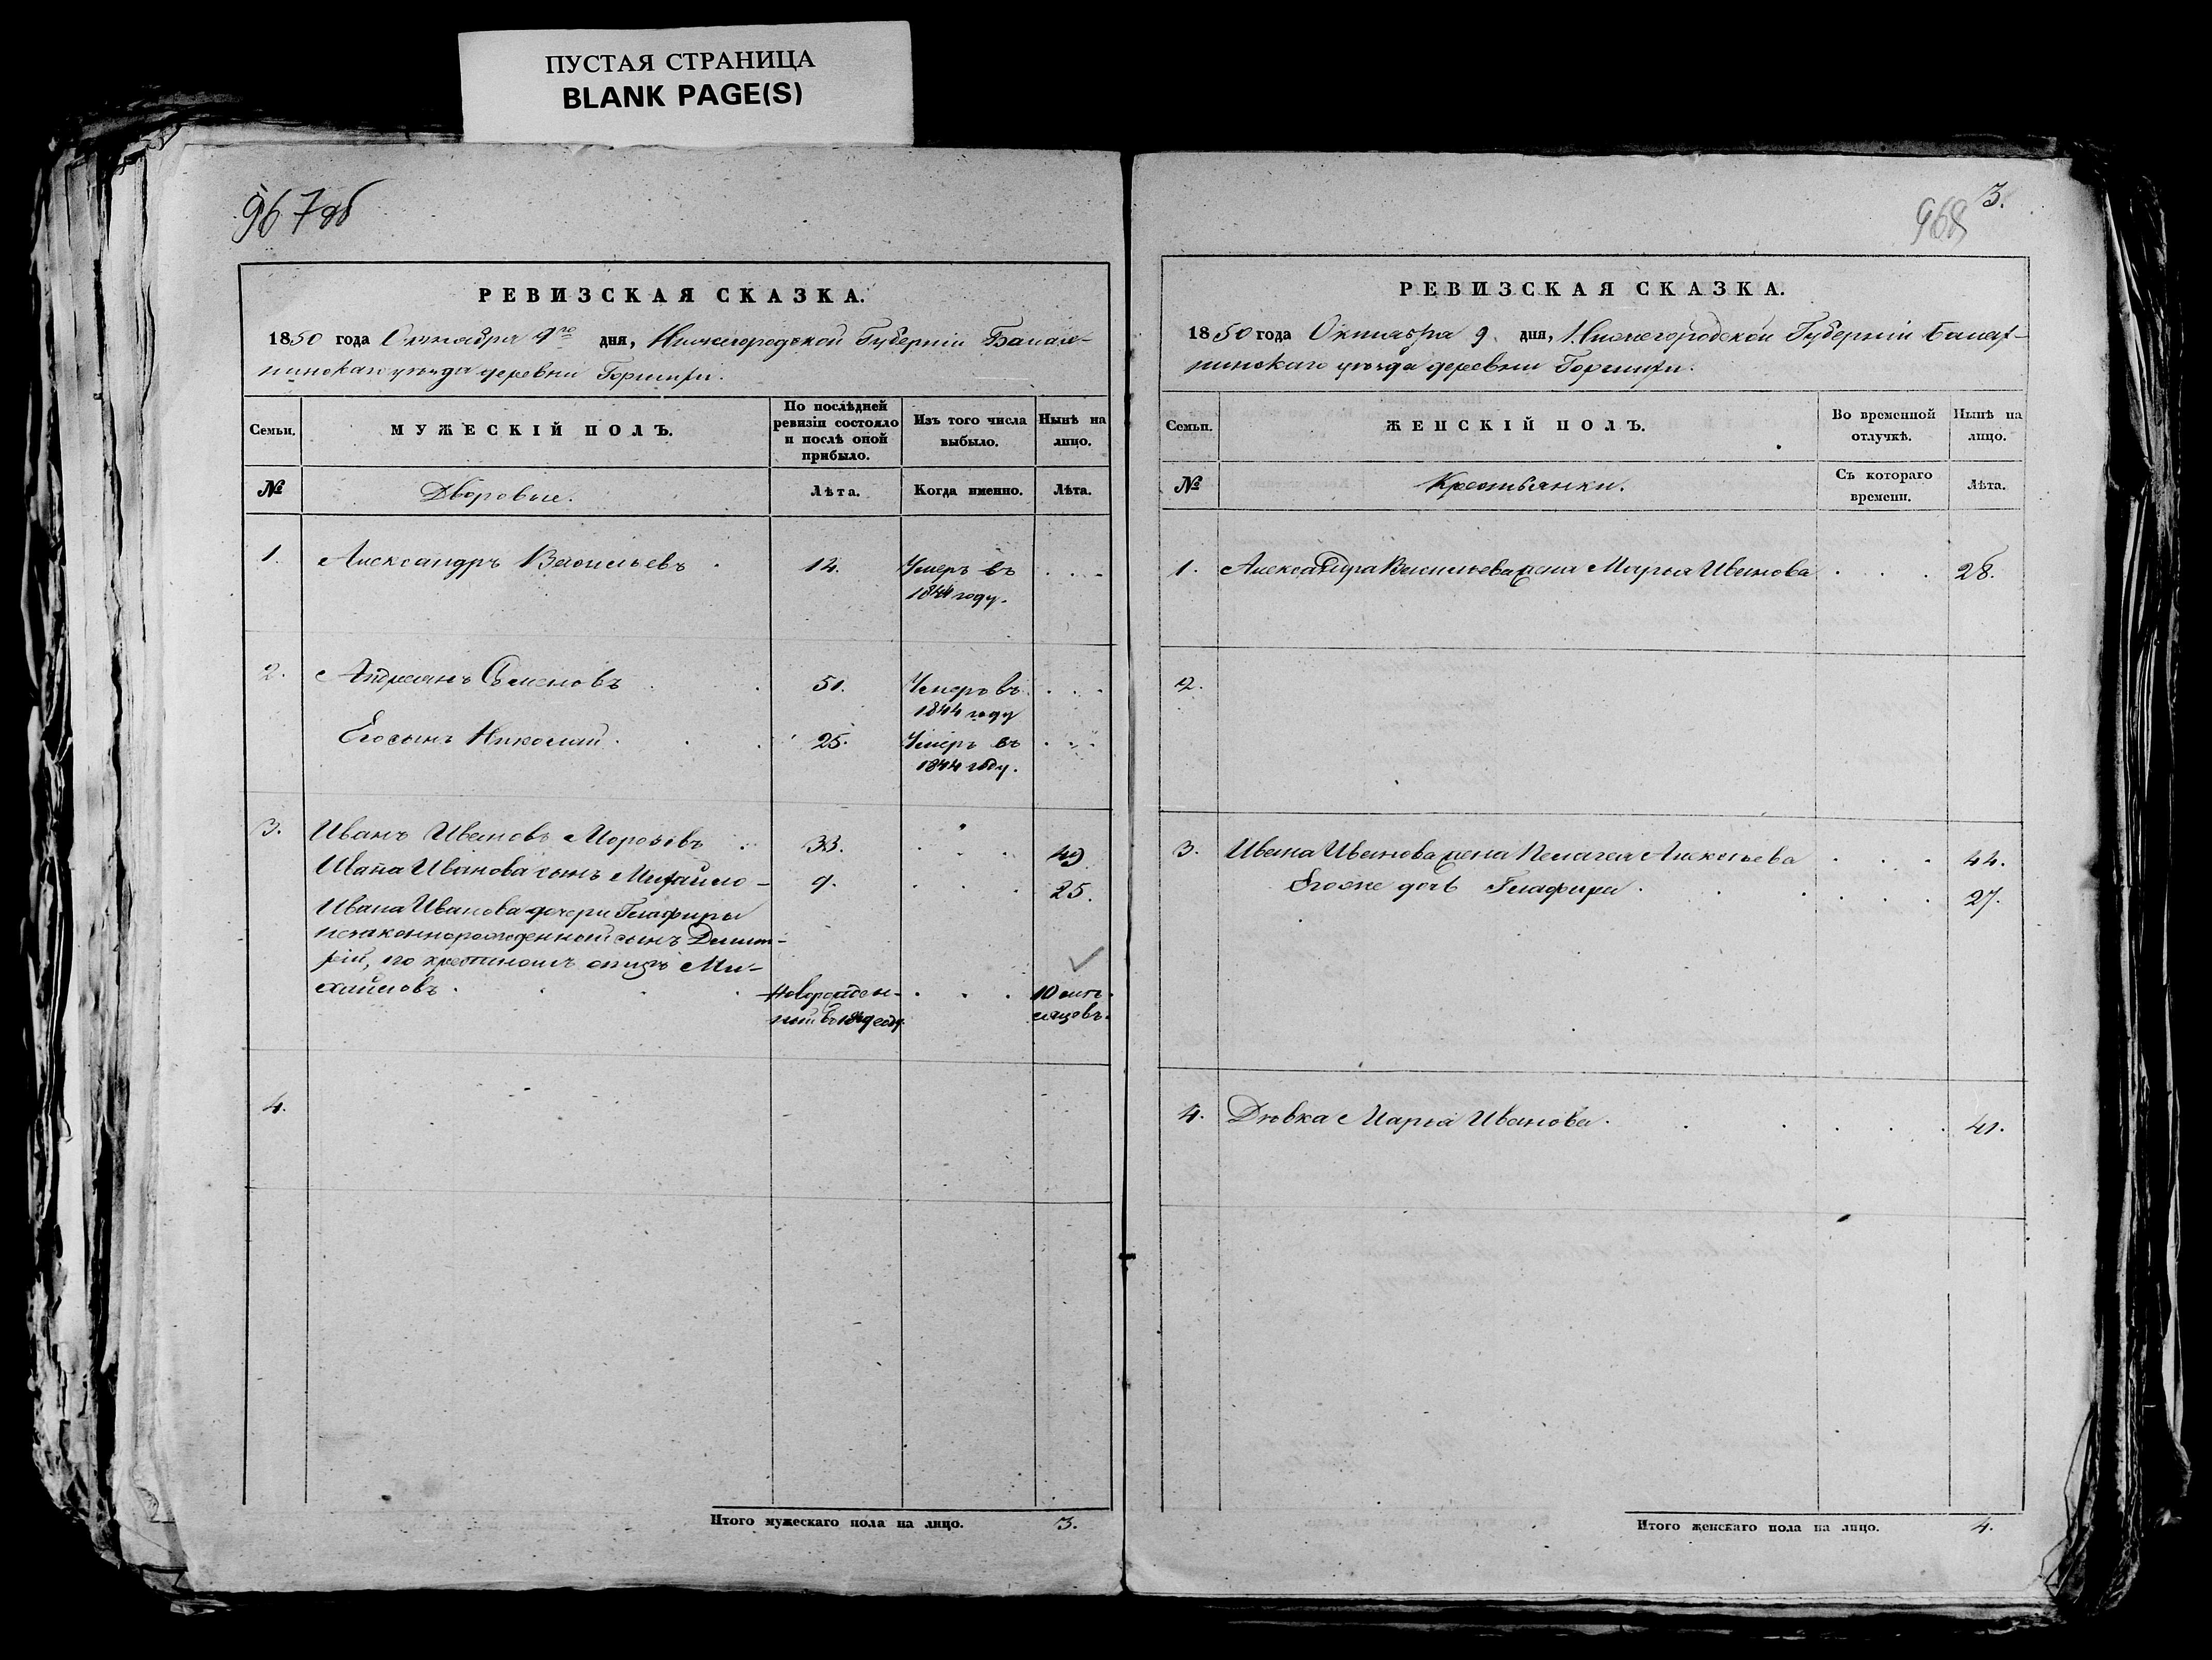 ПУСТАЯ СТРАНИЦА
BLANK PAGE(S)
967об
РЕВИЗСКАЯ СКАЗКА.
1850 года Октября 9го дня, Нижегородской Губерніи Балах-
нинскаго уѣзда деревни
Семьи.
МУЖЕСКІЙ ПОЛЪ.
По послѣдней ревизіи состояло и послѣ оной прибыло.
Изъ того числа выбыло.
Нынѣ на лицо.
№
Дворовые.
Лѣта.
Когда именно.
Лѣта.
1. Александръ Васильевъ 14. Умеръ въ
1844 году.
2. Андреянъ Семеновъ 51. Умеръ въ
1844 году
Его сынъ Николай 25. Умеръ въ
1844 году.
3. Иванъ Ивановъ Морозовъ 33. 49
Ивана Иванова сынъ Михайло 9. 25.
Ивана Иванова дочери Глафиры
незаконнорожденный сынъ Димит-
рій, по крестномъ отцѣ Ми-
хайловъ Новорожден- 10 мѣ-
ный въ 1849 году сяцовъ.
4.
Итого мужескаго пола на лицо. 3.
3.
968
РЕВИЗСКАЯ СКАЗКА.
1850 года Октября 9. дня, Нижегородской Губерніи Балах-
нинскаго уѣзда деревни
Семьи.
ЖЕНСКІЙ ПОЛЪ.
Во временной отлучкѣ.
Нынѣ на лицо.
№
Крестьянки.
Съ котораго времени.
Лѣта.
1. Александра Васильева жена Марья Иванова 28.
2.
3. Ивана Иванова жена Пелагея Алексѣева 44.
Его же дочь Глафира 27.
4. Дѣвка Марья Иванова 41.
Итого женскаго пола на лицо. 4.